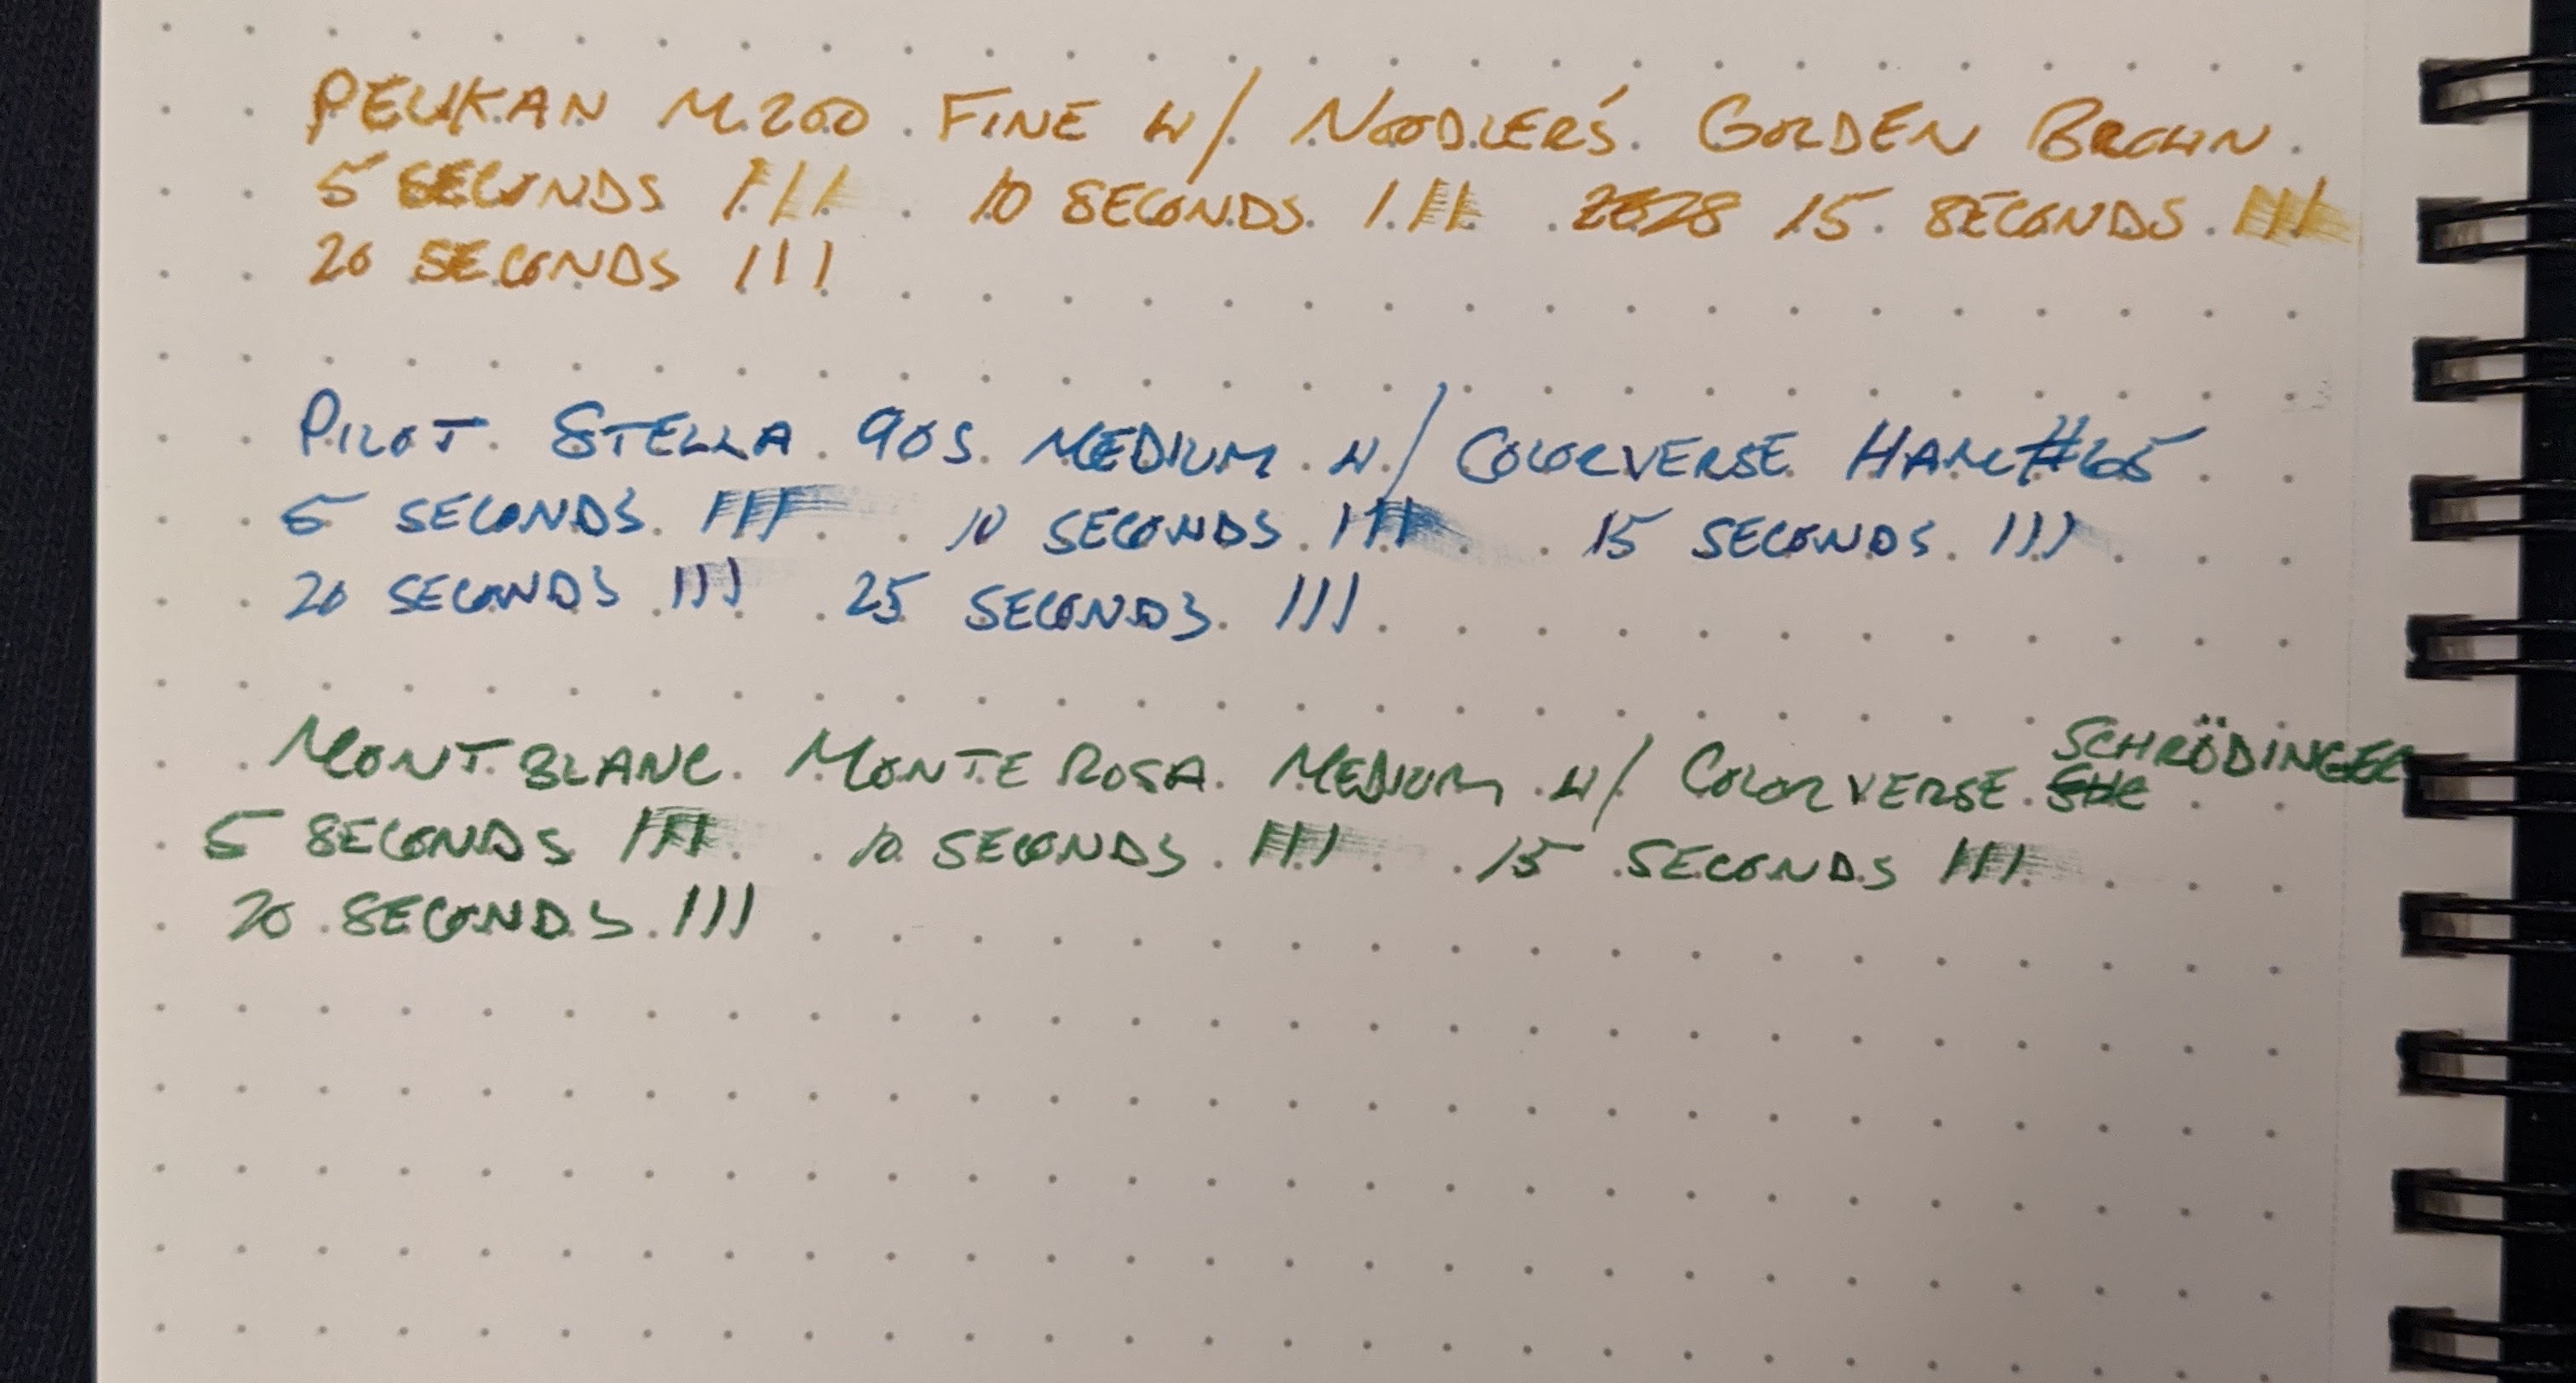 PELIKAN M200 FINE W/ NOODLER'S GOLDEN BROWN
5 SECONDS ||| 10 SECONDS ||| 15 SECONDS |||
20 SECONDS |||
PILOT STELLA 90S MEDIUM W/ COLORVERSE HAM #65
5 SECONDS ||| 10 SECONDS ||| 15 SECONDS |||
20 SECONDS ||| 25 SECONDS |||
MONTBLANC MONTE ROSA MEDIUM W/ COLORVERSE SCHRÖDINGER
5 SECONDS ||| 10 SECONDS ||| 15 SECONDS |||
20 SECONDS |||